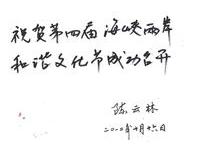 祝贺第四届海峡两岸
和谐文化节成功召开
陈云林
二〇一〇年十月十六日